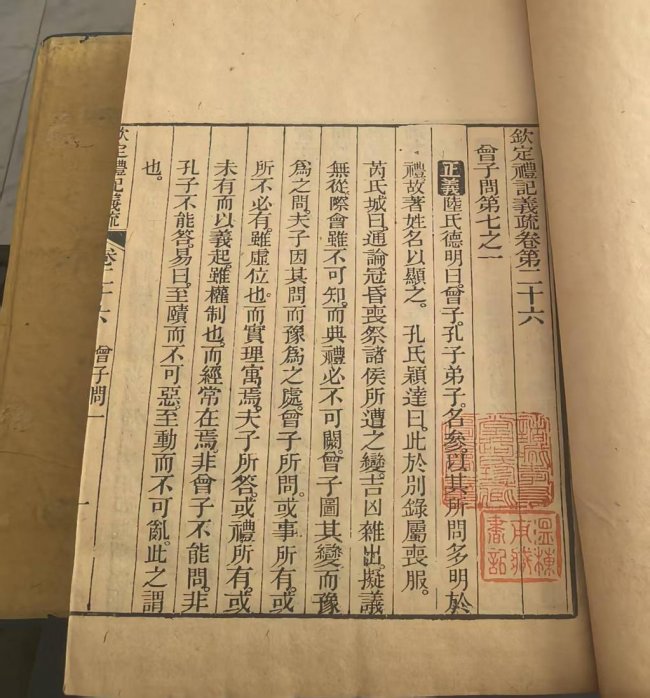 欽定禮記義疏卷第二十六
曾子問第七之一
正義陸氏德明曰。曾子。孔子弟子。名參。以其所問多明於
禮故著姓名以顯之。　孔氏穎達曰。此於別錄屬喪服。
芮氏城曰。通論冠昏喪祭諸侯所遭之變。吉凶雜出。擬議
無從。際會雖不可知。而典禮必不可闕。曾子圖其變而豫
爲之問。夫子因其問而豫爲之處。曾子所問。或事所有。或
所不必有。雖虛位也。而實理寓焉。夫子所答。或禮所有。或
未有而以義起。雖權制也。而經常在焉。非曾子不能問。非
孔子不能答。易曰。至賾而不可惡。至動而不可亂。此之謂
也。
欽定禮記義疏
卷二十六　曾子問一
一